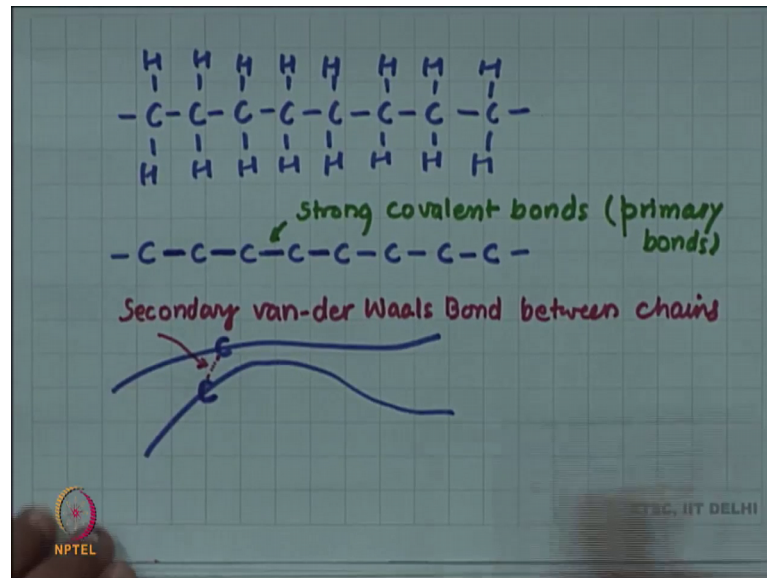 H H H H H H H H
-C-C-C-C-C-C-C-C-
H H H H H H H H
Strong covalent bonds (primary
bonds)
-C-C-C-C-C-C-C-C-
Secondary van-der Waals Bond between chains
C
C
NPTEL
ETSC, IIT DELHI